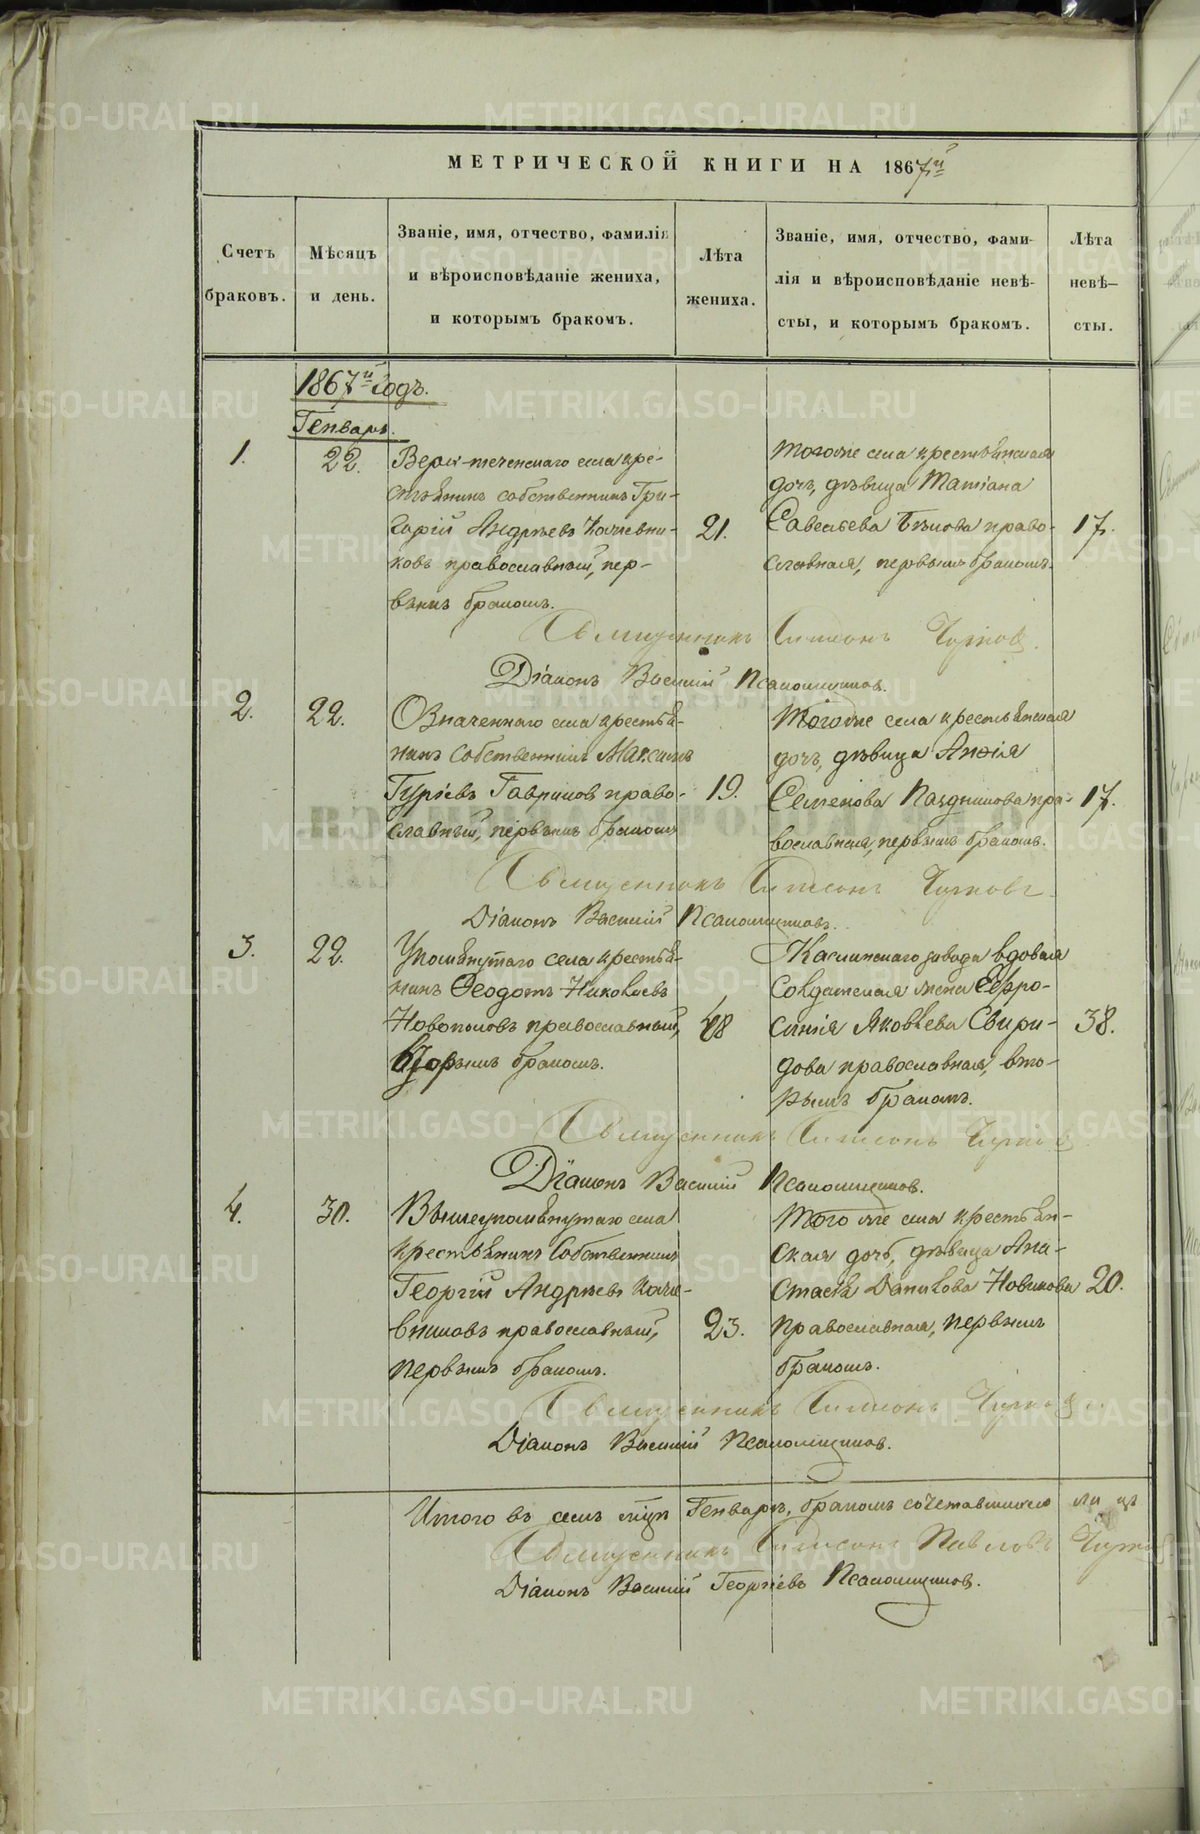 МЕТРИЧЕСКОЙ КНИГИ НА 1867й
Счетъ браковъ.
Мѣсяцъ и день.
Званіе, имя, отчество, фамилія
и вѣроисповѣданіе жениха,
и которымъ бракомъ.
Лѣта жениха.
Званіе, имя, отчество, фами-
лія и вѣроисповѣданіе невѣ-
сты, и которымъ бракомъ.
Лѣта невѣ-
сты.
1867й Годъ.
Генварь.
1.
22.
Верх-теченскаго села кре-
стьянинъ собственникъ Гри-
горій Андреевъ Кочевни-
ковъ православный, пер-
вымъ бракомъ.
21.
Тогоже села крестьянская
дочь, дѣвица Татіана
Савельева Бѣлова право-
славная, первымъ бракомъ.
17.
Священникъ Симеонъ Чирковъ.
Діаконъ Василій Псаломщиковъ.
2.
22.
Означеннаго села крестья-
нинъ собственникъ Максимъ
Гурьевъ Гавриловъ право-
славный, первымъ бракомъ
19.
Тогоже села крестьянская
дочь, дѣвица Анфія
Семенова Паздникова пра-
вославная, первымъ бракомъ.
17.
Священникъ Симеонъ Чирковъ
Діаконъ Василій Псаломщиковъ.
3.
22.
Упомянутаго села крестья-
нинъ Феодотъ Николаевъ
Новопоповъ православный,
вторымъ бракомъ.
48
Каслинскаго завода вдовая
Солдатская жена Евфро-
синія Яковлева Свири-
дова православная, вто-
рымъ бракомъ.
38.
Священникъ Симеонъ Чирковъ
Діаконъ Василій Псаломщиковъ.
4.
30.
Вышеупомянутаго села
крестьянинъ Собственникъ
Георгій Андреевъ Коче-
вниковъ православный,
первымъ бракомъ.
23.
Того же села крестьян-
ская дочь, дѣвица Ана-
стасія Данилова Новикова
православная, первымъ
бракомъ.
20.
Священникъ Симеонъ Чирковъ
Діаконъ Василій Псаломщиковъ.
Итого въ семъ мцѣ Генварѣ, бракомъ сочетавшихся
Священникъ Симеонъ Павловъ Чирковъ
Діаконъ Василій Георгіевъ Псаломщиковъ.
METRIKI.GASO-URAL.RU